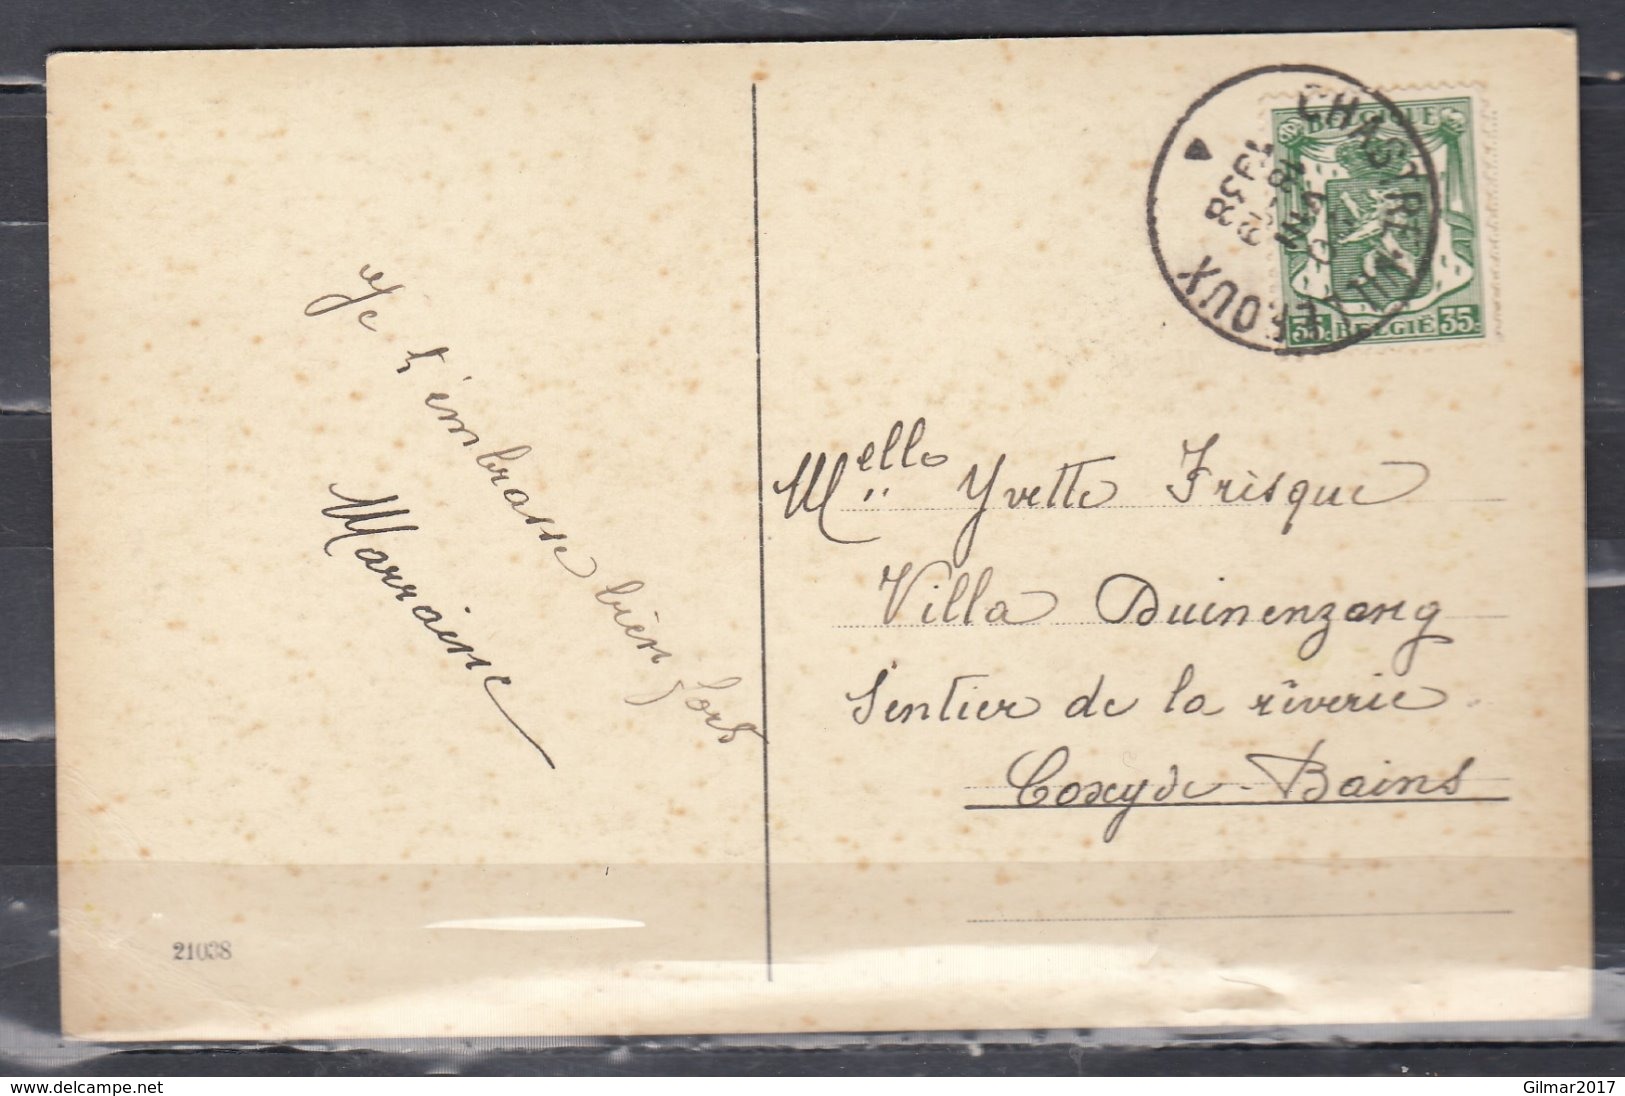 Je t'embrasse bien fort
Marraine
21038
CHASTRE-VILLEROUX
BELGIQUE
35c BELGIË 35c
Melle Yvette Frisque
Villa Duinenzang
Sentier de la rêverie
Coxyde-Bains
www.delcampe.net
Gilmar2017